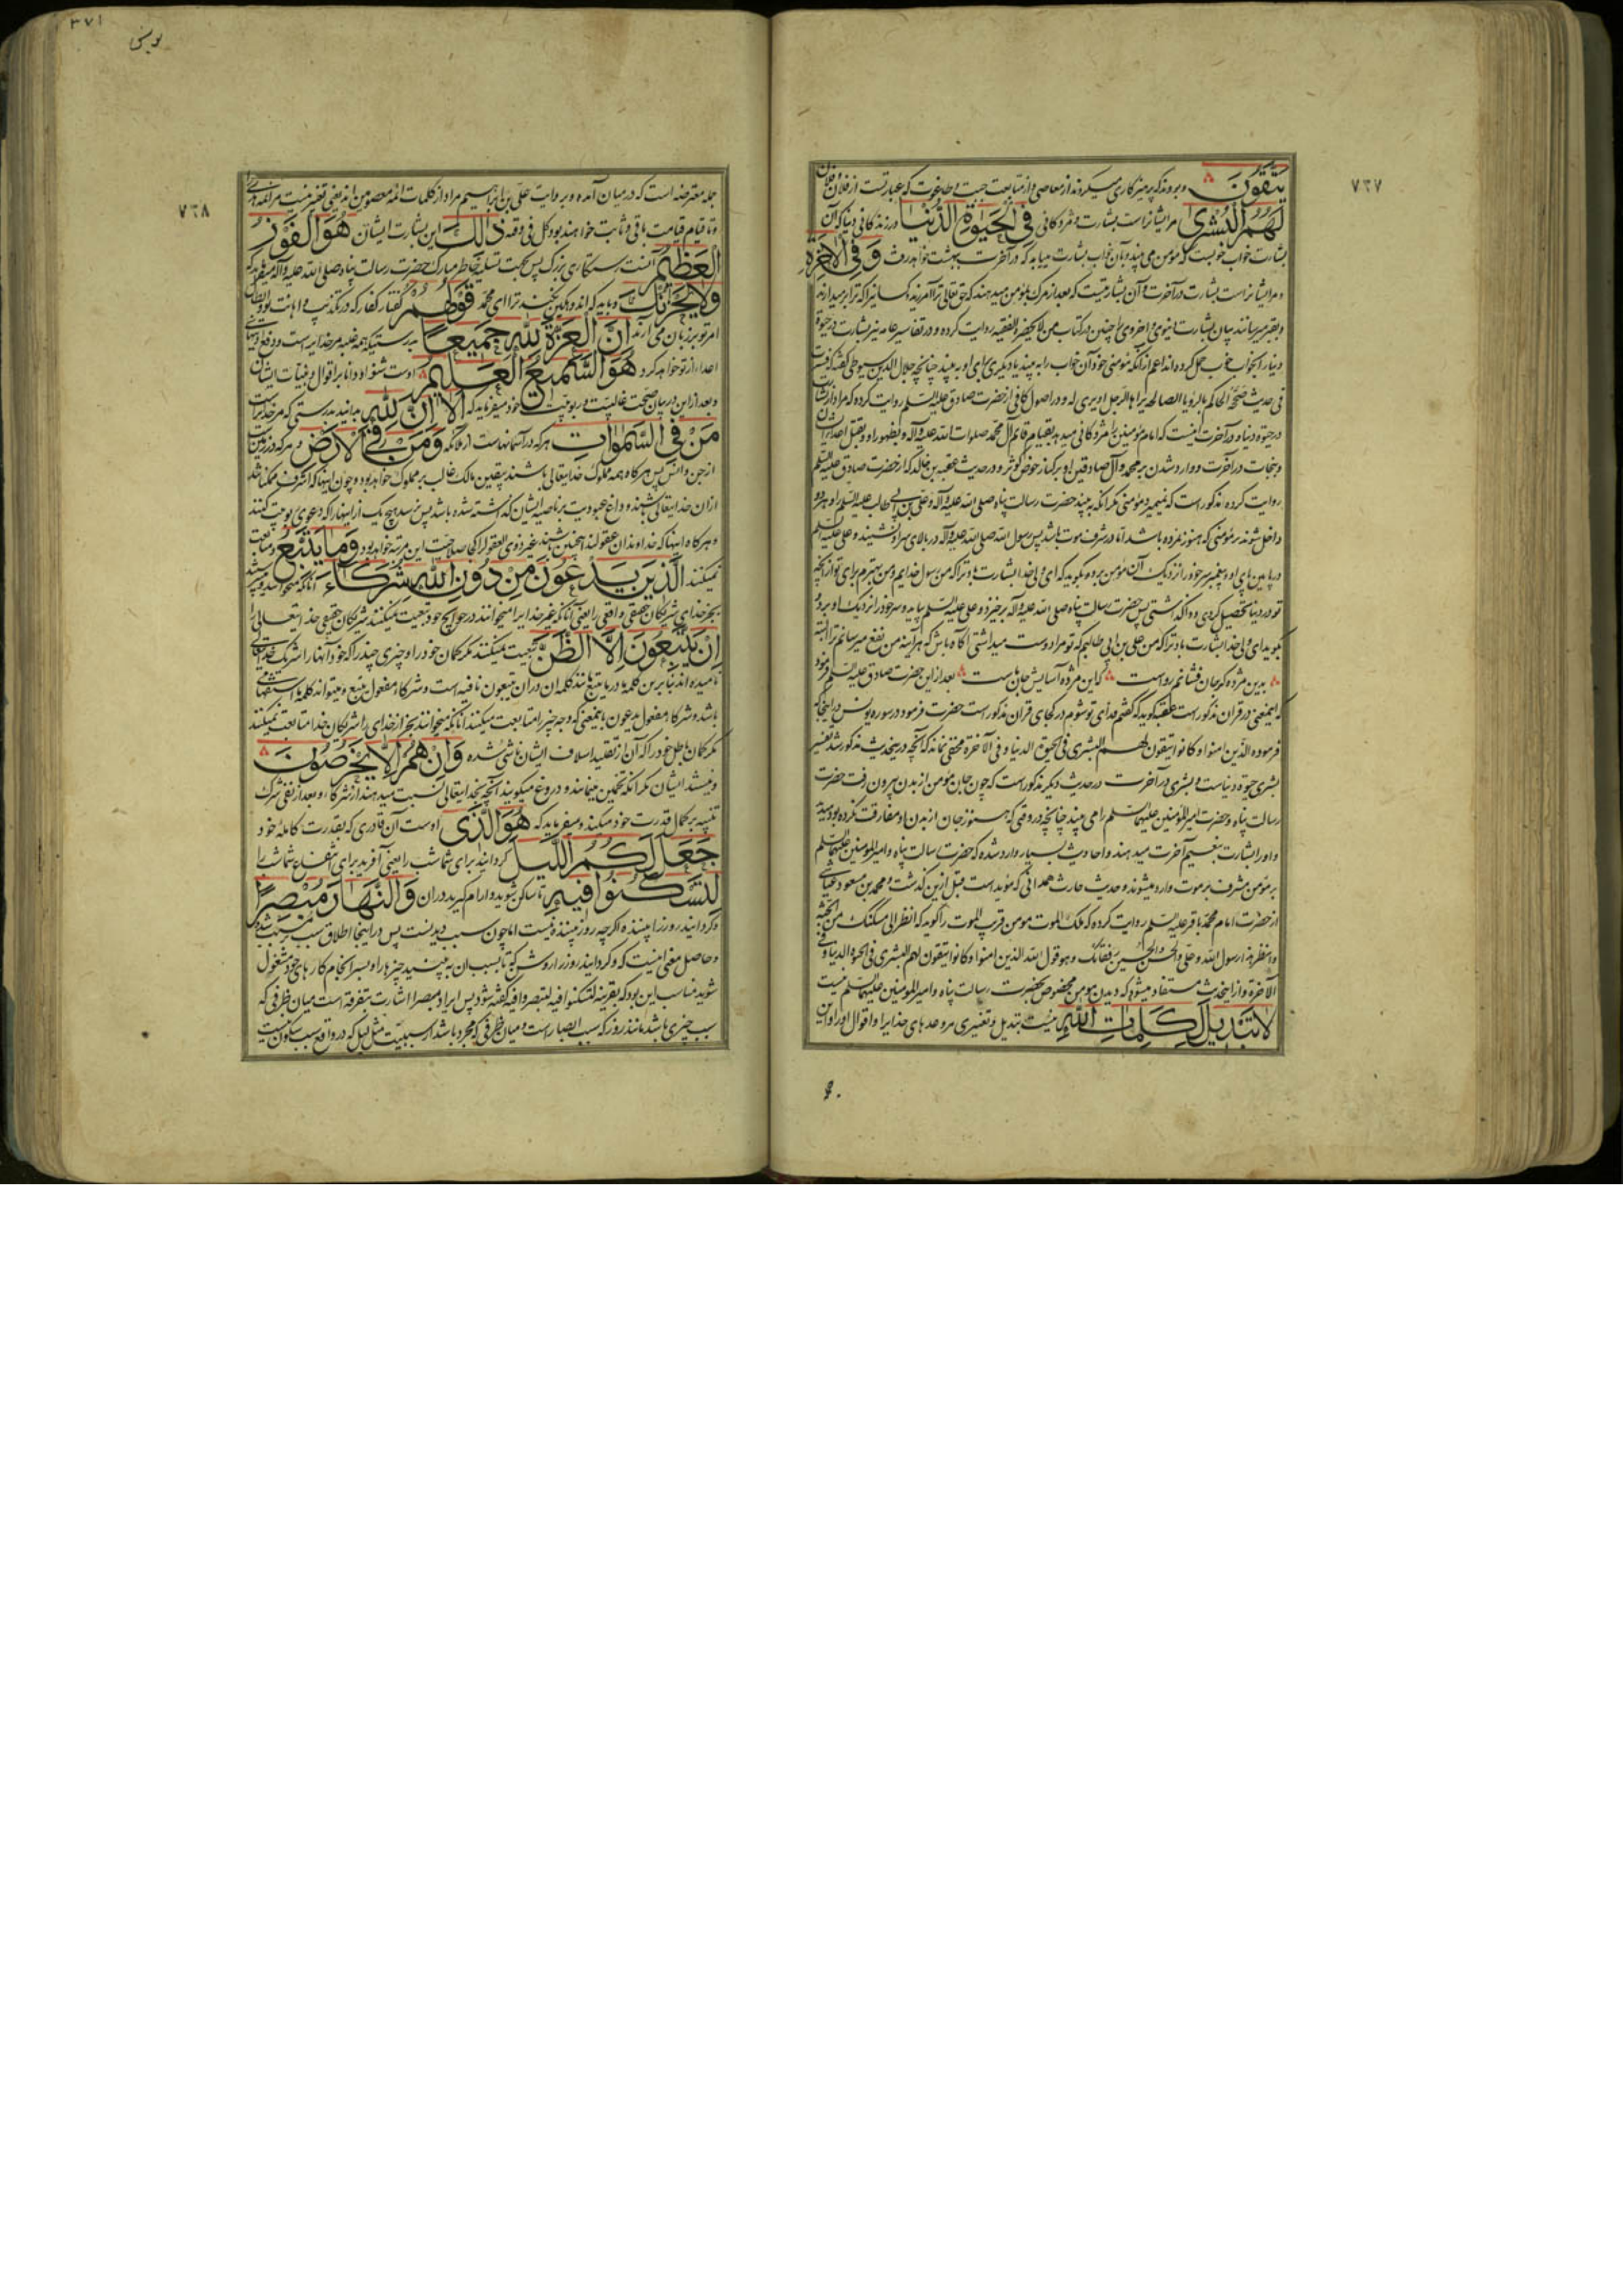 ٧٦٧
يَتَّقُونَ و بودند که پرهیزکاری میکردند از معاصی و از متابعت جبت و طاغوت که عبارتست از فلان و فلان
لَهُمُ الْبُشْرٰى مر ایشانراست بشارت و مژدگانی فِي الْحَيٰوةِ الدُّنْيَا در زندگانی دنیا که آن
بشارت خواب خوبست که مؤمن می بیند و بآن خواب بشارت مییابد که در آخرت ببهشت خواهد رفت وَفِي الْاٰخِرَةِ
و مر ایشانراست بشارت در آخرت و آن بشارتیست که بعد از مرک بمؤمن میدهند که حق تعالی ترا آمرزید و کسانیرا که ترا برمیدارند
و بقبر میرسانند بیان بشارت دنیوی و اخروی را چنین در کتاب من لا یحضره الفقیه روایت کرده و در تفاسیر عامه نیز بشارت در حیوة
دنیا را بخواب خوب حمل کرده اند اعم از آنکه مؤمنی خود آن خواب را به بیند یا دیگری برای او به بیند چنانچه جلال الدین سیوطی گفته که فسرت
فی حدیث صححه الحاکم بالرؤیا الصالحة یراها الرجل او یری له و در اصول کافی از حضرت صادق علیه السلم روایت کرده که مراد از بشارت
در حیوة دنیا و در آخرت اینست که امام مؤمنین را مژدگانی میدهد بقیام قائم آل محمد صلوات الله علیه و آله و بظهور او و بقتل اعداء ایشان
و بنجات در آخرت و وارد شدن بر محمد و آل صادقین او بر کنار حوض کوثر و در حدیث عقبة بن خالد که از حضرت صادق علیه السلم
روایت کرده مذکور است که نمیمیرد مؤمنی مگر آنکه به بیند حضرت رسالت پناه صلی الله علیه و آله و علی بن ابی طالب علیه السلم را و هر دو
داخل شوند بر مؤمنی که هنوز نمرده باشد اما در شرف موت باشد پس رسول الله صلی الله علیه و آله در بالای سر او نشیند و علی علیه السلم
در پایین پای او و پیغمبر سر خود را نزدیک آن مؤمن برده و بگوید که ای ولی خدا بشارت باد ترا که من رسول خدایم و من بهترم برای تو از آنچه
تو در دنیا تحصیل کردی و واگذاشتی پس حضرت رسالت پناه صلی الله علیه و آله برخیزد و علی علیه السلم بیاید و سر خود را نزدیک او برد و
بگوید ای ولی خدا بشارت باد ترا که من علی بن ابی طالبم که تو مرا دوست میداشتی آگاه باش که هر آینه من نفع میرسانم ترا البته
بدین مژده گر جان فشانم رواست که این مژده آسایش جان ماست بعد از این حضرت صادق علیه السلم فرمود
که اینمعنی در قران مذکور است عقبه گوید که گفتم فدای تو شوم در کجای قران مذکور است حضرت فرمود در سوره یونس در اینجا که
فرموده الذین امنوا و کانوا یتقون لهم البشری فی الحیوة الدنیا و فی الآخرة مخفی نماند که آنچه در ینحدیث مذکور شد تفسیر
بشری حیوة دنیاست و بشری در آخرت در حدیث دیگر مذکور است که چون جان مؤمن از بدن بیرون رفت حضرت
رسالت پناه و حضرت امیر المؤمنین علیهما السلم را می بیند چنانچه در وقتی که هنوز جان از بدن او مفارقت نکرده بود میدید
و او را بشارت بنعیم آخرت میدهند و احادیث بسیار وارد شده که حضرت رسالت پناه و امیر المؤمنین علیهما السلم
بر مؤمن مشرف بر موت وارد میشوند و حدیث حارث همدانی که مؤید است قبل ازین گذشت و محمد بن مسعود عیاشی
از حضرت امام محمد باقر علیه السلم روایت کرده که ملک الموت مومن قریب الموت را گوید که انظر الی مسکنک من الجنة
و انظر هذا رسول الله و علی و الحسن و الحسین رفقائک و هو قول الله الذین امنوا و کانوا یتقون لهم البشری فی الحیوة الدنیا و فی
الآخرة و از اینحدیث مستفاد میشود که دیدن مومن مخصوص بحضرت رسالت پناه و امیر المؤمنین علیهما السلم نیست
لَا تَبْدِيلَ لِكَلِمَاتِ اللّٰهِ نیست تبدیل و تغییری مر وعدهای خدایرا و اقوال او را و این
٣٧١
یونس
٧٦٨
جمله معترضه است که در میان آمده و بروایت علی بن ابراهیم مراد از کلمات ائمه معصومین اند یعنی تغییر نیست مر ائمه هدی را
و تا قیام قیامت باقی و ثابت خواهند بود کل فی وقته ذٰلِكَ این بشارت ایشان هُوَ الْفَوْزُ
الْعَظِيمُ آنست رستگاری بزرک پس بجهت تسلیه خاطر مبارک حضرت رسالت پناه صلی الله علیه و آله میفرماید که
وَلَا يَحْزُنْكَ و باید که اندوهگین نکند ترا ای محمد قَوْلُهُمْ گفتار کفار که در تکذیب و اهانت تو و ابطال
امر تو بر زبان می آرند اِنَّ الْعِزَّةَ لِلّٰهِ جَمِيعًا بدرستیکه همه غلبه مر خدایراست و دفع ایذای
اعدا را از تو خواهد کرد هُوَ السَّمِيعُ الْعَلِيمُ اوست شنوا و دانا بر اقوال و نیات ایشان
و بعد از این در بیان صحت غالبیت و ربوبیت خود میفرماید که اَلَا اِنَّ لِلّٰهِ بدانید بدرستی که مر خدایراست
مَنْ فِي السَّمٰوَاتِ هر که در آسمانهاست از ملائکه وَمَنْ فِي الْاَرْضِ و هر که در زمین است
از جن و انس پس هرگاه همه مملوک خدایتعالی باشند یقین مالک غالب بر مملوک خواهد بود و چون اینها که اشرف ممکناتند
از ان خدایتعالی باشند و داغ عبودیت بر ناصیه ایشان گذاشته شده باشد پس نرسد هیچ یک از اینها را که دعوی ربوبیت کنند
و هرگاه اینها که خداوندان عقولند اینچنین باشند غیر ذوی العقول را کی صلاحیت این مرتبه خواهد بود وَمَا يَتَّبِعُ و متابعت
نمیکنند الَّذِينَ يَدْعُونَ مِنْ دُونِ اللّٰهِ شُرَكَاءَ آنانکه میخوانند و میپرستند
بجز خدای شریکان حقیقی و واقعی را یعنی آنانکه غیر خدایرا میخوانند در حوایج خود تبعیت نمیکنند شریکان حقیقی خدایتعالی را
اِنْ يَتَّبِعُونَ اِلَّا الظَّنَّ تبعیت نمیکنند مگر گمان خود را و چیزی چند را که خود آنها را شریک خدایتعالی
نامیده اند بنابرین کلمه ما در ما یتبع مانند کلمه ان در ان یتبعون نافیه است و شرکاء مفعول یتبع و میتواند کلمه ما استفهامی
باشد و شرکاء مفعول یدعون باینمعنی که و چه چیز را متابعت میکنند آنانکه میخوانند بجز از خدای را شریکان خدا متابعت نمیکنند
مگر گمان باطل خود را که آن از تقلید اسلاف ایشان ناشی شده وَاِنْ هُمْ اِلَّا يَخْرُصُونَ
و نیستند ایشان مگر آنکه تخمین مینمایند و دروغ میگویند آنچه بخدایتعالی نسبت میدهند از شرکاء و بعد از نفی شرک
تنبیه بر کمال قدرت خود میکند و میفرماید که هُوَ الَّذِي اوست آن قادری که بقدرت کامله خود
جَعَلَ لَكُمُ الَّيْلَ گردانید برای شما شب را یعنی آفرید برای شما شب را
لِتَسْكُنُوا فِيهِ تا ساکن شوید و ارام گیرید در ان وَالنَّهَارَ مُبْصِرًا
و گردانید روز را بیننده اگر چه روز بیننده نیست اما چون سبب دیدنست پس در اینجا اطلاق سبب بر مسبب شده
و حاصل معنی اینست که و گردانید روز را روشن که تا بسبب ان به بینید چیزها را و بسرانجام کارهای خود مشغول
شوید مناسب این بود که بقرینه لتسکنوا فیه لتبصروا فیه گفته شود پس ایراد مبصرا اشارت بتفرقه است میان ظرفی که
سبب چیزی باشد مانند روز که سبب ابصار است و میان ظرفی که مجرد باشد از سببیت مثل لیل که در واقع سبب سکون نیست